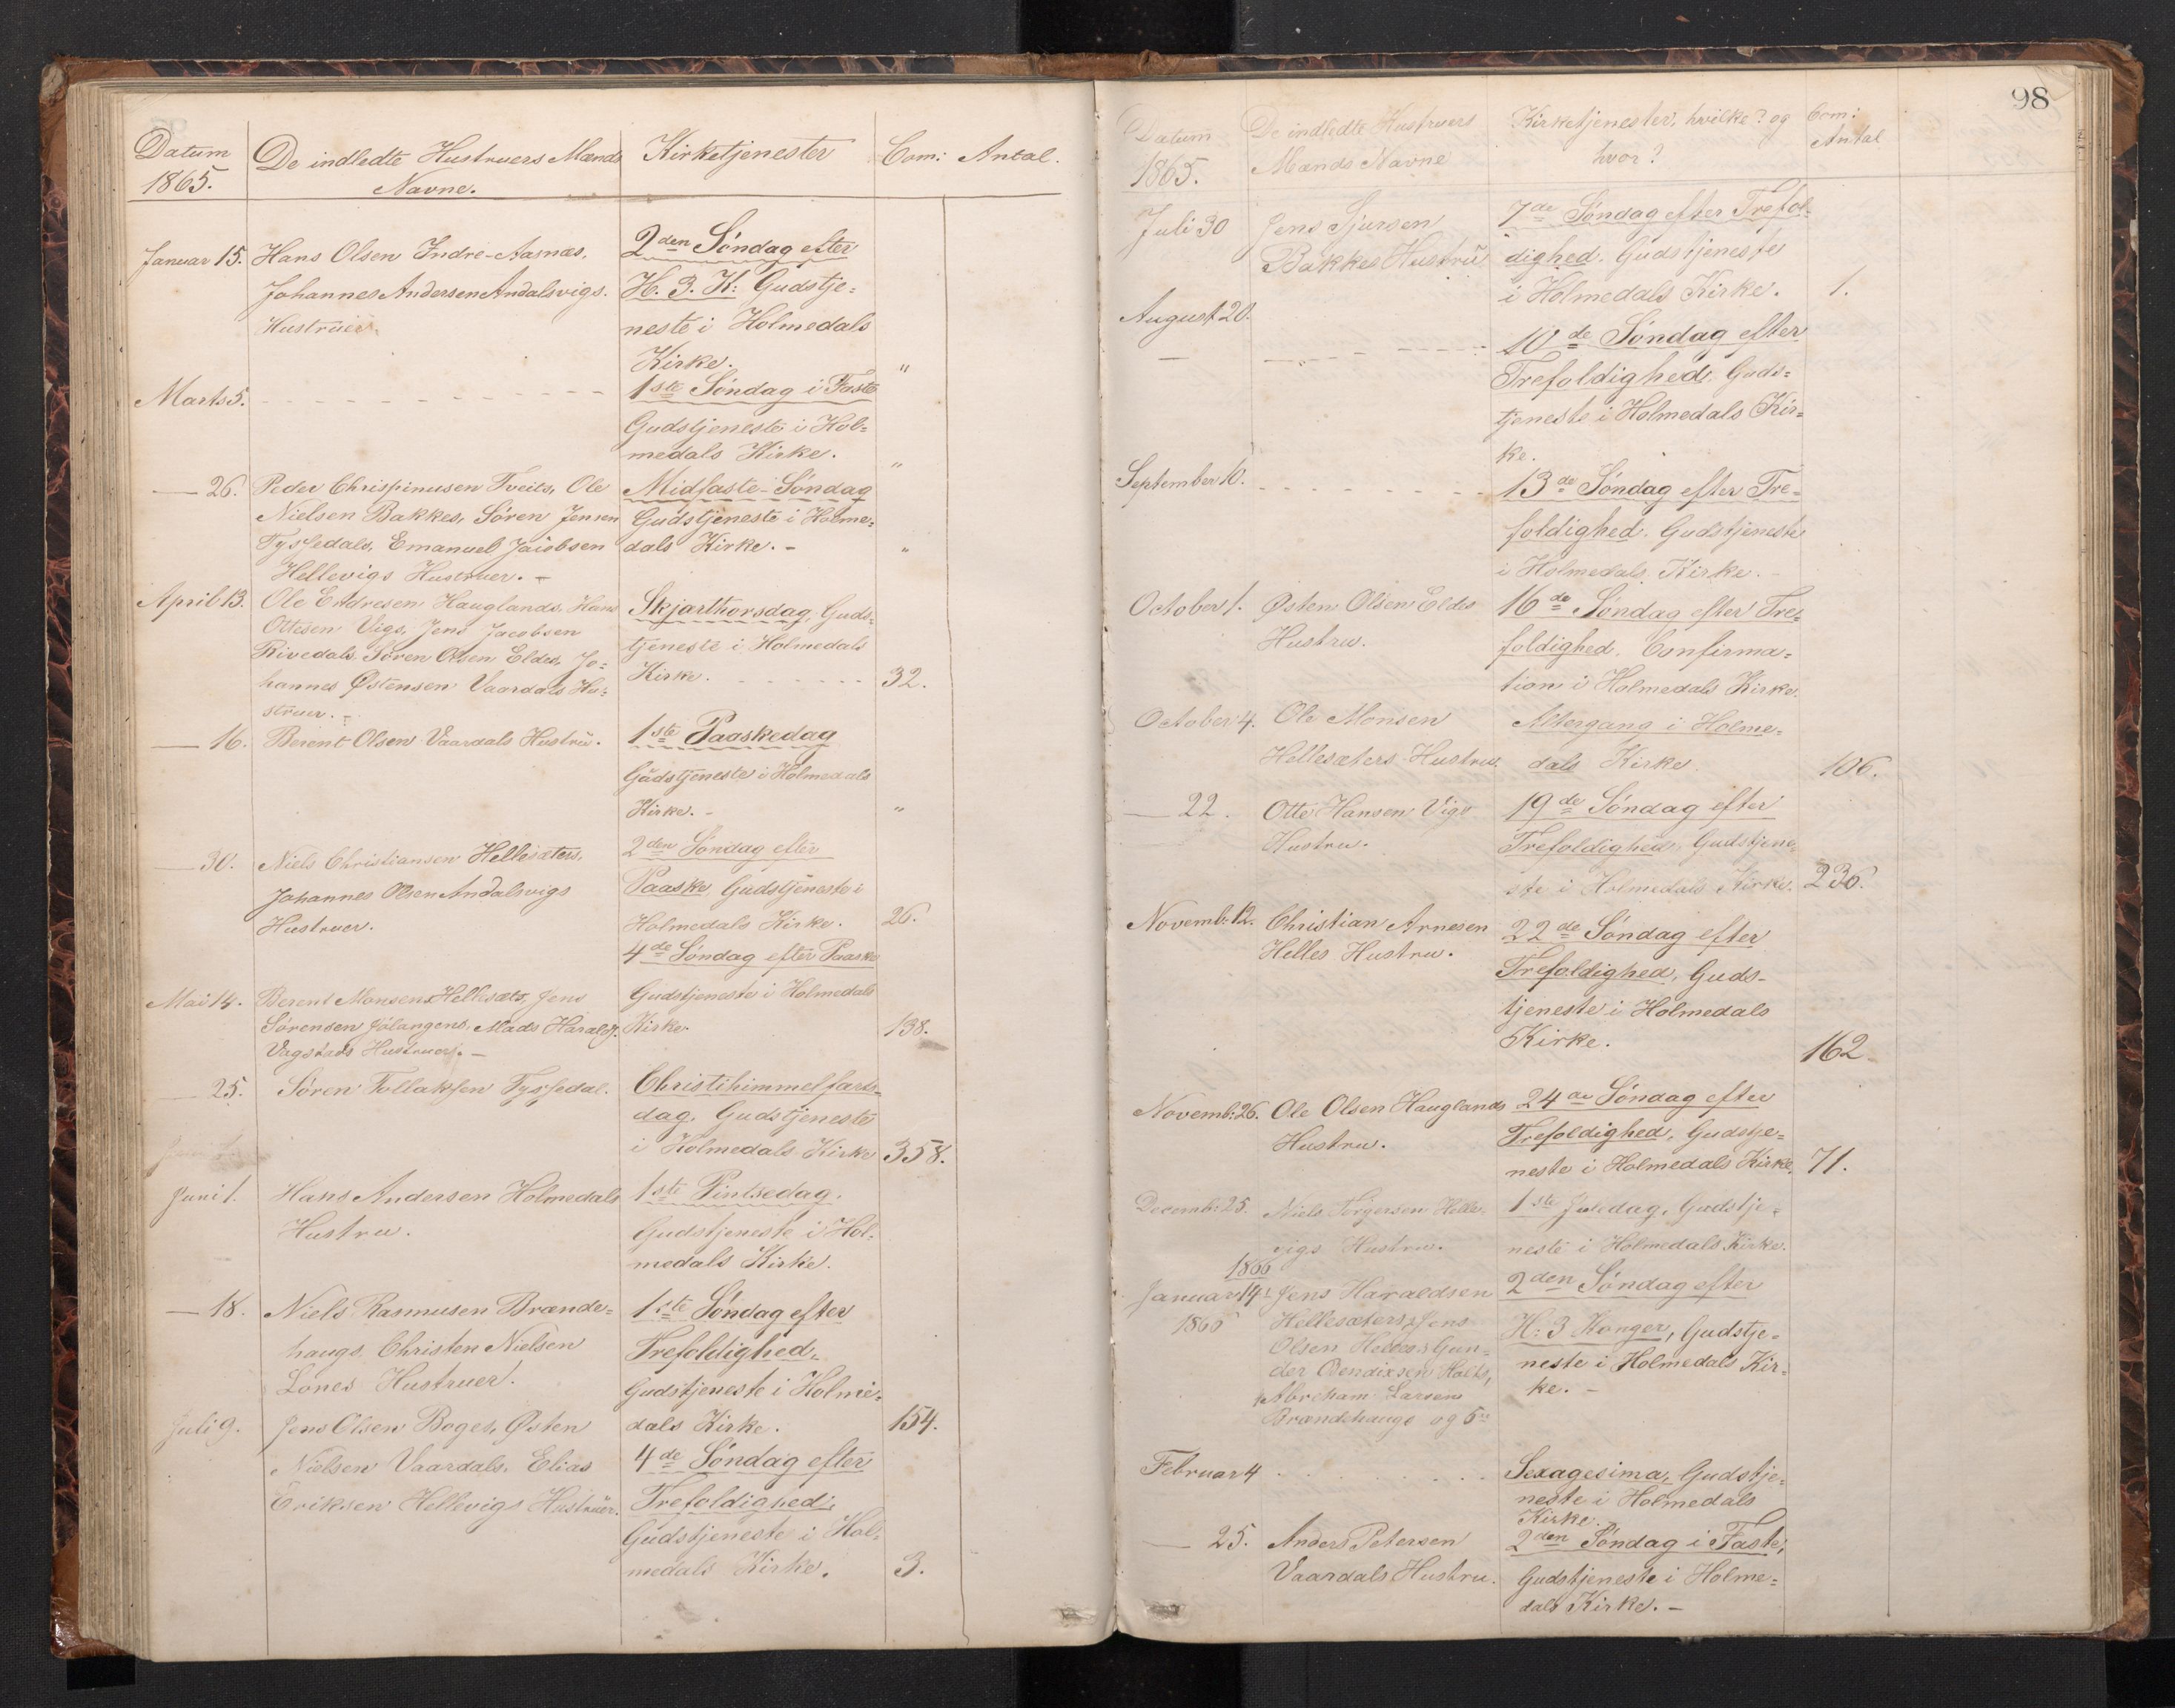 Datum
1865.
De indledte Hustruers Mænds
Navne.
Kirketjenester
Com: Antal.
Januar 15. Hans Olsen Indre-Aasnæs,
Johannes Andersen Andalsvigs.
Hustruer.
2den Söndag efter
H. 3. K: Gudstje=
neste i Holmedals
Kirke. "
Marts 5.
1ste Söndag i Faste
Gudstjeneste i Hol=
medals Kirke. "
— 26. Peder Chrispinusen Tveits, Ole
Nielsen Bakkes, Sören Jensen
Tyssedals, Emanuel Jacobsen
Hellevigs Hustruer. -
Midfaste-Söndag
Gudstjeneste i Holme=
dals Kirke. - "
April 13. Ole Endresen Hauglands, Hans
Ottesen Vigs, Jens Jacobsen
Rivedals, Sören Olsen Eldes, Jo=
hannes Østensen Vaardals Hu=
struer. -
Skjærthorsdag, Guds=
tjeneste i Holmedals
Kirke. 32.
— 16. Berent Olsen Vaardals Hustru.
1ste Paaskedag
Gudstjeneste i Holmedals
Kirke. - "
— 30. Niels Christiansen Hellesæters,
Johannes Olsen Andalsvigs
Hustruer.
2den Söndag efter
Paaske Gudstjeneste i
Holmedals Kirke. 26.
4de Söndag efter Paaske
Mai 14. Berent Monsen Hellesæts, Jens
Sörensen Jölangens, Mads Haralds.
Vagstads Hustruer. -
Gudstjeneste i Holmedals
Kirke. 138.
— 25. Sören Tollaksen Tyssedal.
Christihimmelfarts-
dag. Gudstjeneste
i Holmedals Kirke 358.
Juni 1. Hans Andersen Holmedals
Hustru.
1ste Pintsedag.
Gudstjeneste i Hol=
medals Kirke.
— 18. Niels Rasmusen Brænde=
haugs, Christen Nielsen
Lones Hustruer.
1ste Söndag efter
Trefoldighed.
Gudstjeneste i Holme=
dals Kirke. 154.
Juli 9. Jens Olsen Boges, Østen
Nielsen Vaardals, Elias
Eriksen Hellevigs Hustruer.
4de Söndag efter
Trefoldighed.
Gudstjeneste i Hol=
medals Kirke. 3.
98
Datum
1865.
De indledte Hustruers
Mænds Navne
Kirketjenester, hvilke? og
hvor?
Com:
Antal
Juli 30 Jens Sjursen
Bakkes Hustru
7de Söndag efter Trefol=
dighed. Gudstjeneste
i Holmedals Kirke. 1.
August 20.
10de Söndag efter
Trefoldighed. Guds=
tjeneste i Holmedals Kir=
ke.
September 10.
13de Söndag efter Tre=
foldighed. Gudstjeneste
i Holmedals Kirke. -
October 1. Østen Olsen Eldes
Hustru.
16de Söndag efter Tre=
foldighed. Confirma=
tion i Holmedals Kirke.
October 4. Ole Monsen
Hellesæters Hustru.
Altergang i Holme=
dals Kirke. 106.
— 22. Otte Hansen Vigs
Hustru.
19de Söndag efter
Trefoldighed, Gudstjene=
ste i Holmedals Kirke. 236.
Novemb: 12. Christian Arnesen
Helles Hustru.
22de Söndag efter
Trefoldighed, Guds-
tjeneste i Holmedals
Kirke. 162
Novemb: 26. Ole Olsen Hauglands
Hustru.
24de Söndag efter
Trefoldighed, Gudstje=
neste i Holmedals Kirke. 71.
Decemb: 25. Niels Torgersen Helle-
vigs Hustru.
1ste Juledag, Gudstje=
neste i Holmedals Kirke.
1866
Januar 14: Jens Haraldsen
1866 Hellesæters, Jens
Olsen Helles, Gun=
der Bendixsen Holts,
Abreham Larsens
Brændehaugs og 5
2den Söndag efter
H: 3 Konger, Gudstje=
neste i Holmedals Kir=
ke. -
Februar 4
Sexagesima, Gudstje=
neste i Holmedals
Kirke.
— 25. Anders Petersen
Vaardals Hustru.
2den Söndag i Faste,
Gudstjeneste i Holme=
dals Kirke. -